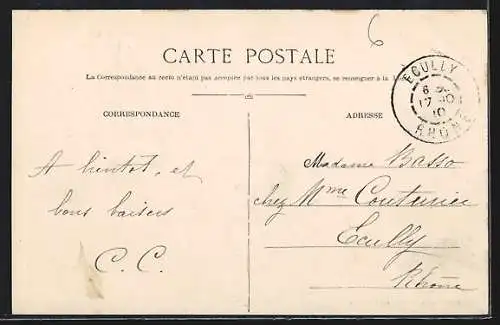 6
CARTE POSTALE
La Correspondance au recto n'étant pas acceptée par tous les pays étrangers, se renseigner à la
CORRESPONDANCE
ADRESSE
ECULLY
17
10
RHONE
A bientot, et
bons baisers
C. C.
Madame Basso
chez Mme Couturier
Ecully
Rhône